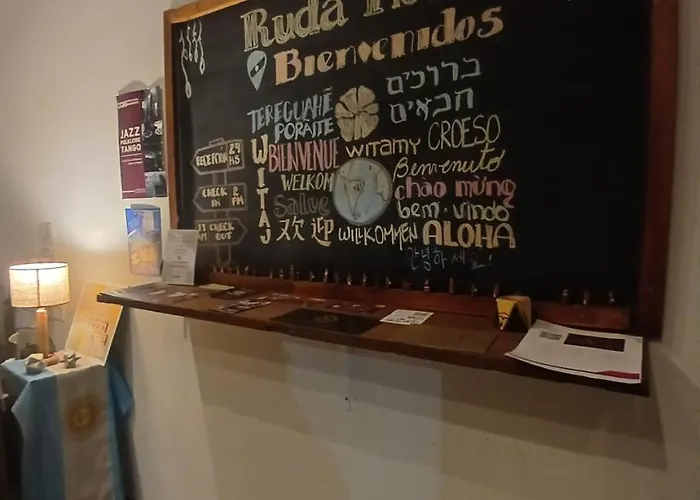 Ruda
Bienvenidos
TEREGUAHÊ
PORAITE
ברוכים
הבאים
BIENVENUE
WITAMY
CROESO
WELKOM
Benvenuto
Salve
chào mừng
bem-vindo
WITAJ
欢迎
WILLKOMMEN
ALOHA
안녕하세요!
RECEPCIÓN 24
HS
CHECK 2
IN PM
11 CHECK
AM OUT
JAZZ
FOLKLORE
TANGO